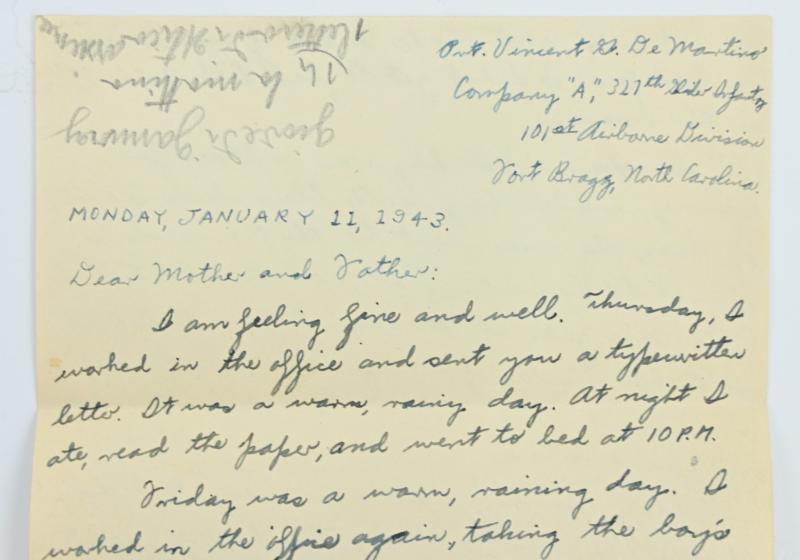 Pvt. Vincent G. De Martino
Company "A," 327th Glider Infantry
101st Airborne Division
Fort Bragg, North Carolina.
MONDAY, JANUARY 11, 1943.
Dear Mother and Father:
I am feeling fine and well. Thursday, I
worked in the office and sent you a typewritten
letter. It was a warm, rainy day. At night I
ate, read the paper, and went to bed at 10 P.M.
Friday was a warm, raining day. I
worked in the office again, taking the boy's
14 la mattina